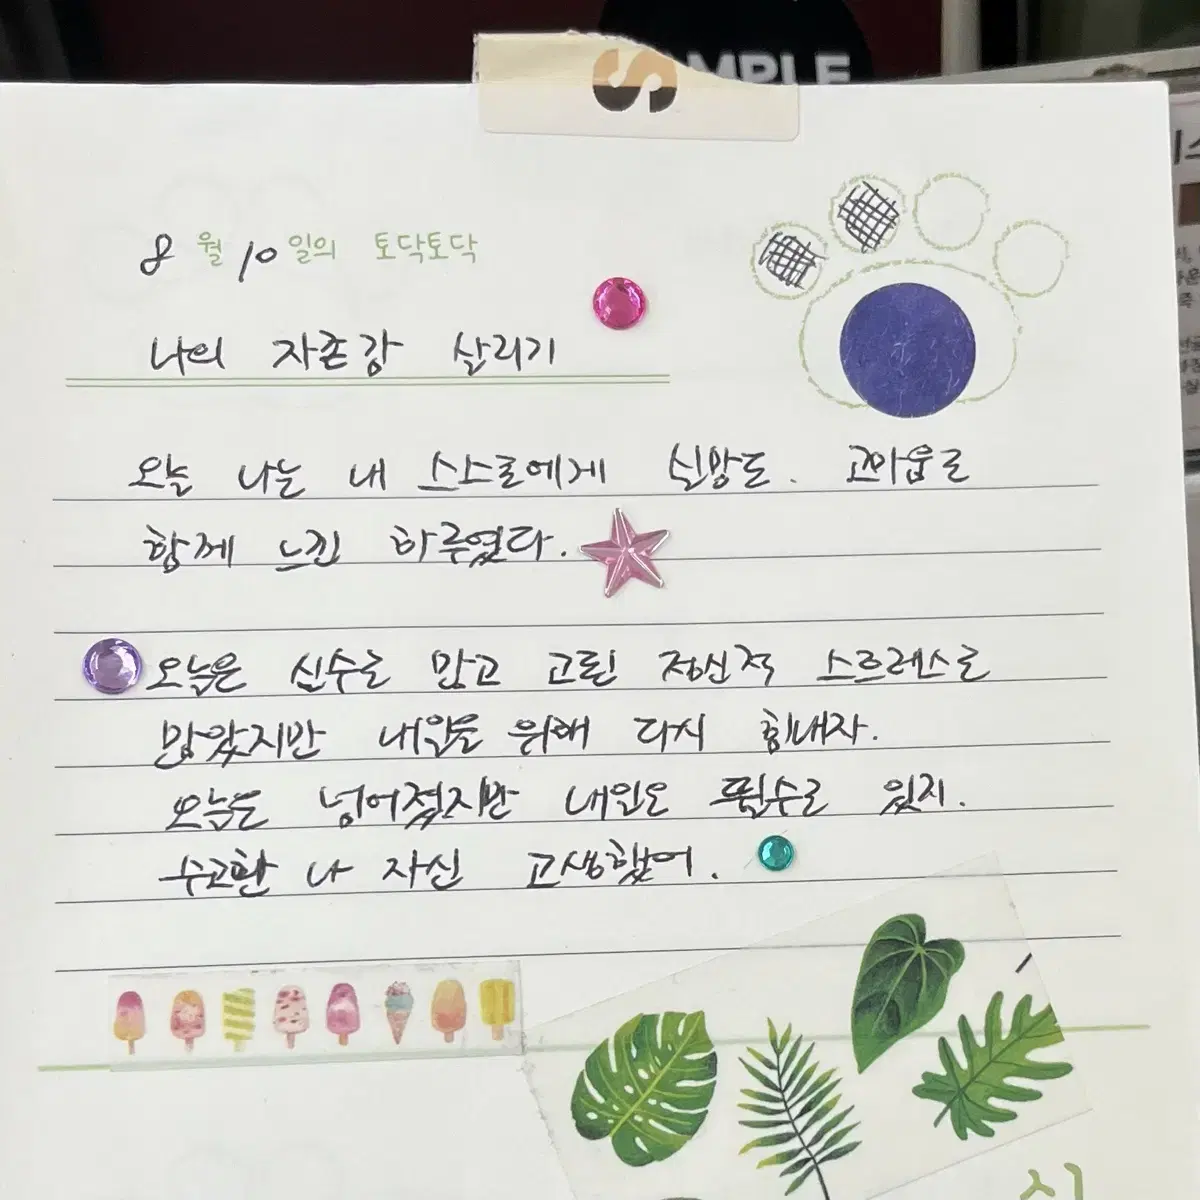 SAMPLE
8월 10일의 토닥토닥
나의 자존감 살리기
오늘 나는 내 스스로에게 실망도. 고마움도
함께 느낀 하루였다.
오늘은 실수로 맘고 고린 정신적 스트레스로
맘았지만 내일을 위해 다시 힘내자.
오늘도 넘어졌지만 내일도 필수로 있지.
수고한 나 자신 고생했어.